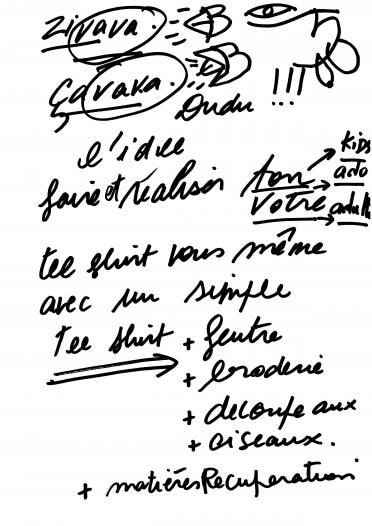 Zivava.
Çavava.
Dudu !!!
l'idée
faire et réaliser
ton
votre
kids
ado
adulte
tee shirt vous même
avec un simple
Tee shirt + feutre
+ broderie
+ decoupe aux
+ ciseaux.
+ matières Recuperation